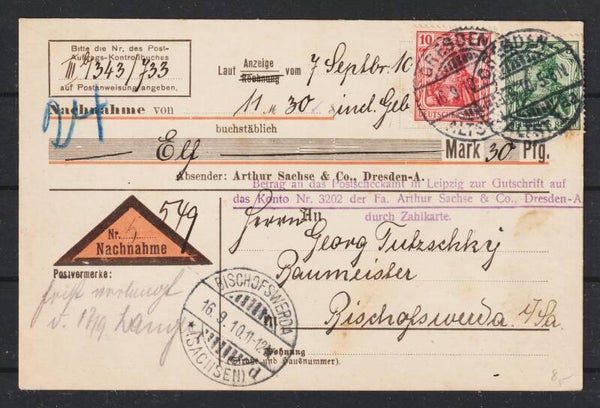 Bitte die Nr. des Post-
Auftrags-Kontrollbuches
III 1343/733
auf Postanweisung angeben.
Laut Anzeige vom 7 Septbr. 10
Rechnung
Nachnahme von 11 M 30 incl. Geb
buchstäblich
Elf Mark 30 Pfg.
Absender: Arthur Sachse & Co., Dresden-A.
Betrag an das Postscheckamt in Leipzig zur Gutschrift auf
das Konto Nr. 3202 der Fa. Arthur Sachse & Co., Dresden-A.
durch Zahlkarte.
10
DRESDEN
DRESDEN
16.9.10
549
Nr.
Nachnahme
Herrn
An
Georg Tutzschky
Baumeister
Bischofswerda i/Sa
Postvermerke:
Frist verlangt
BISCHOFSWERDA
16.9.10.11-12
(SACHSEN)
d
Wohnung
(Straße und Hausnummer).
8,-